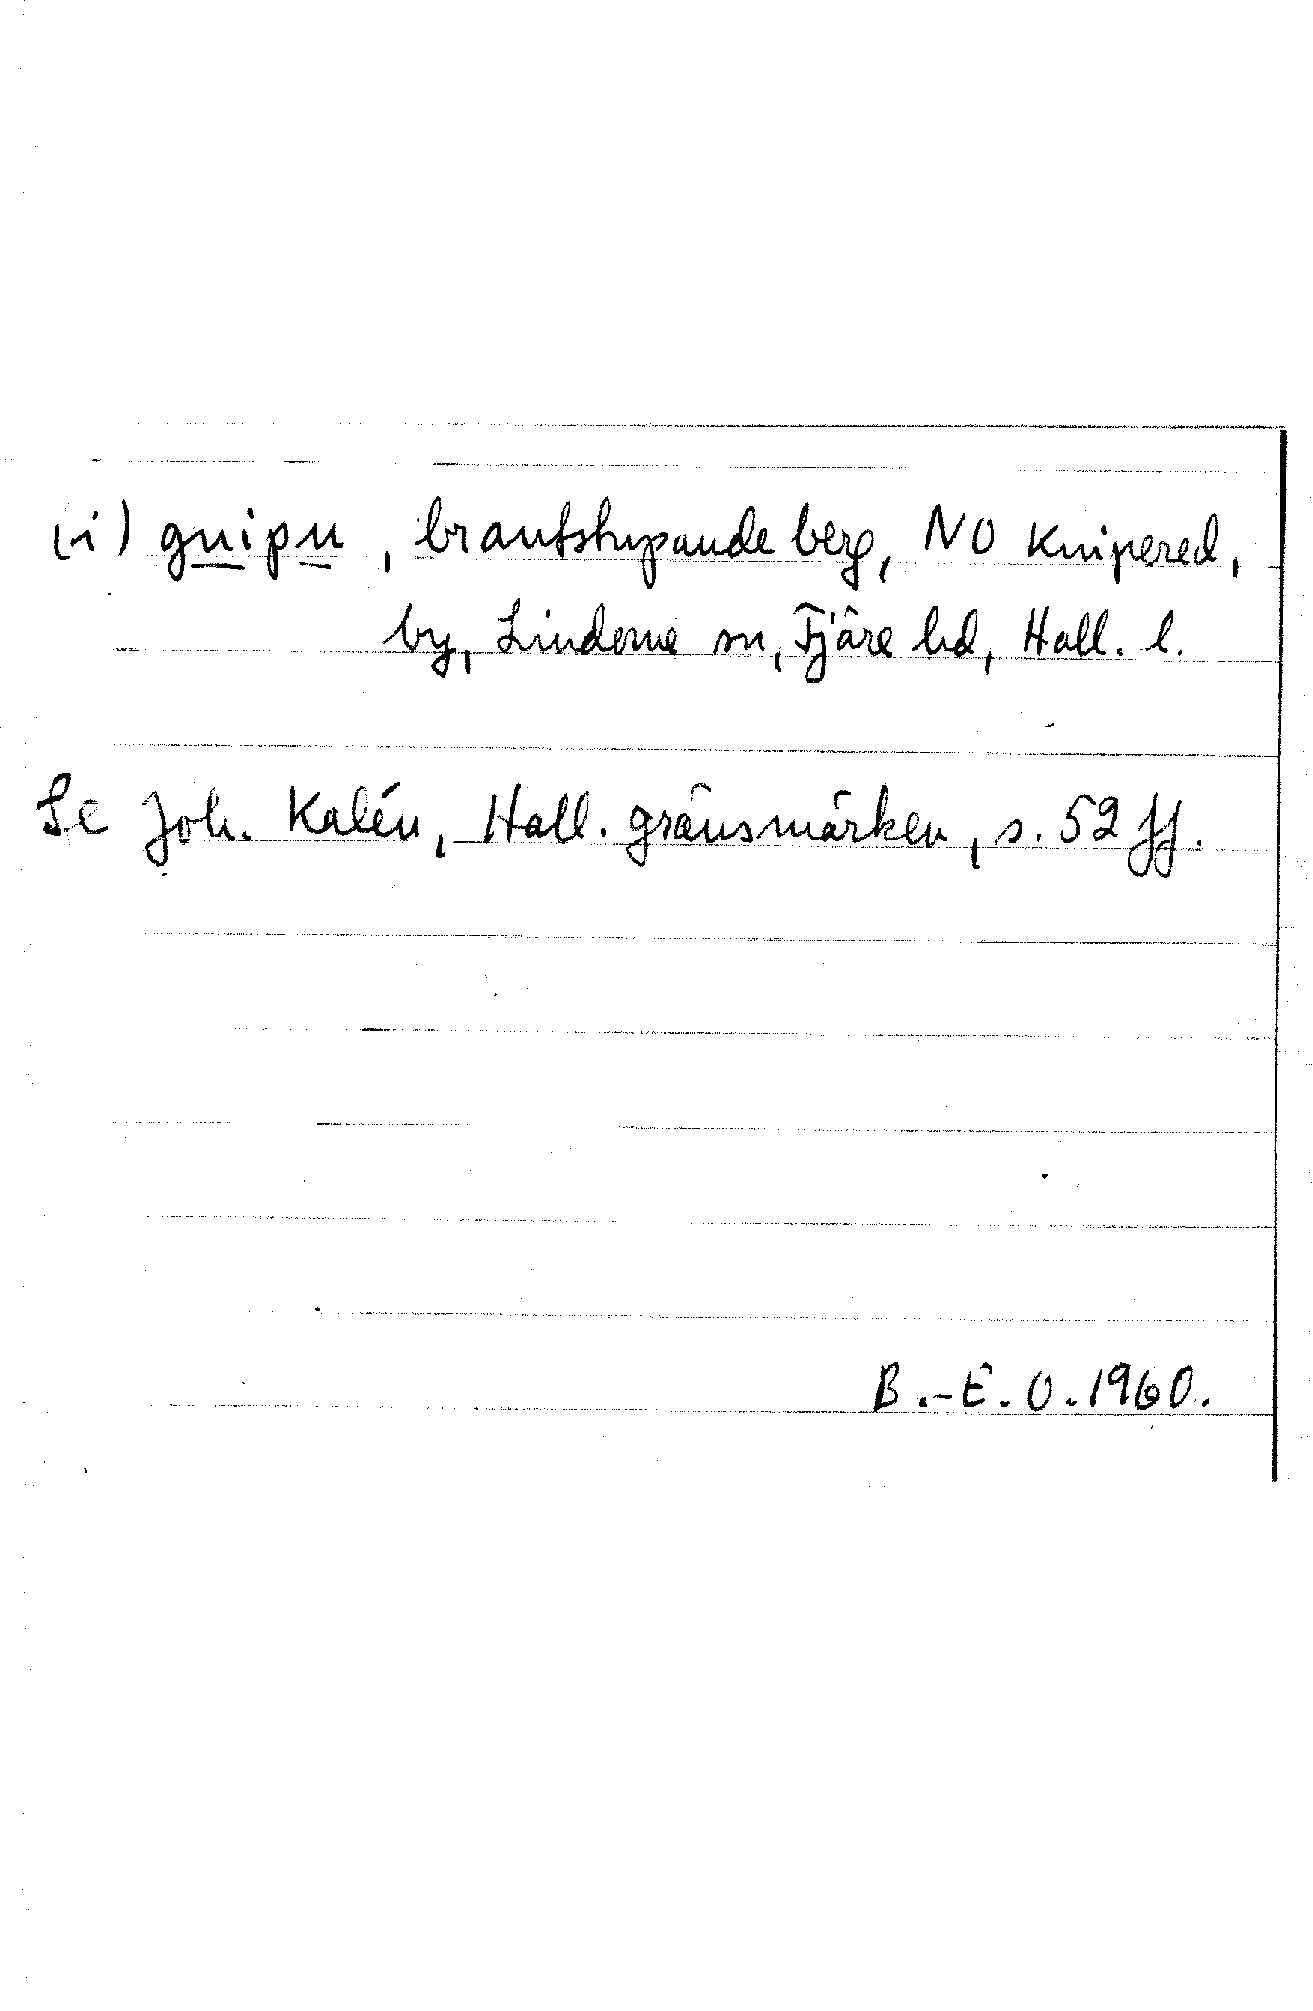 (i) gnipu, brantstupande berg, NO Knipered,
by, Lindome sn, Fjäre hd, Hall. l.
Se Joh. Kalén, Hall. gränsmärken, s. 52 ff.
B.-E. O. 1960.